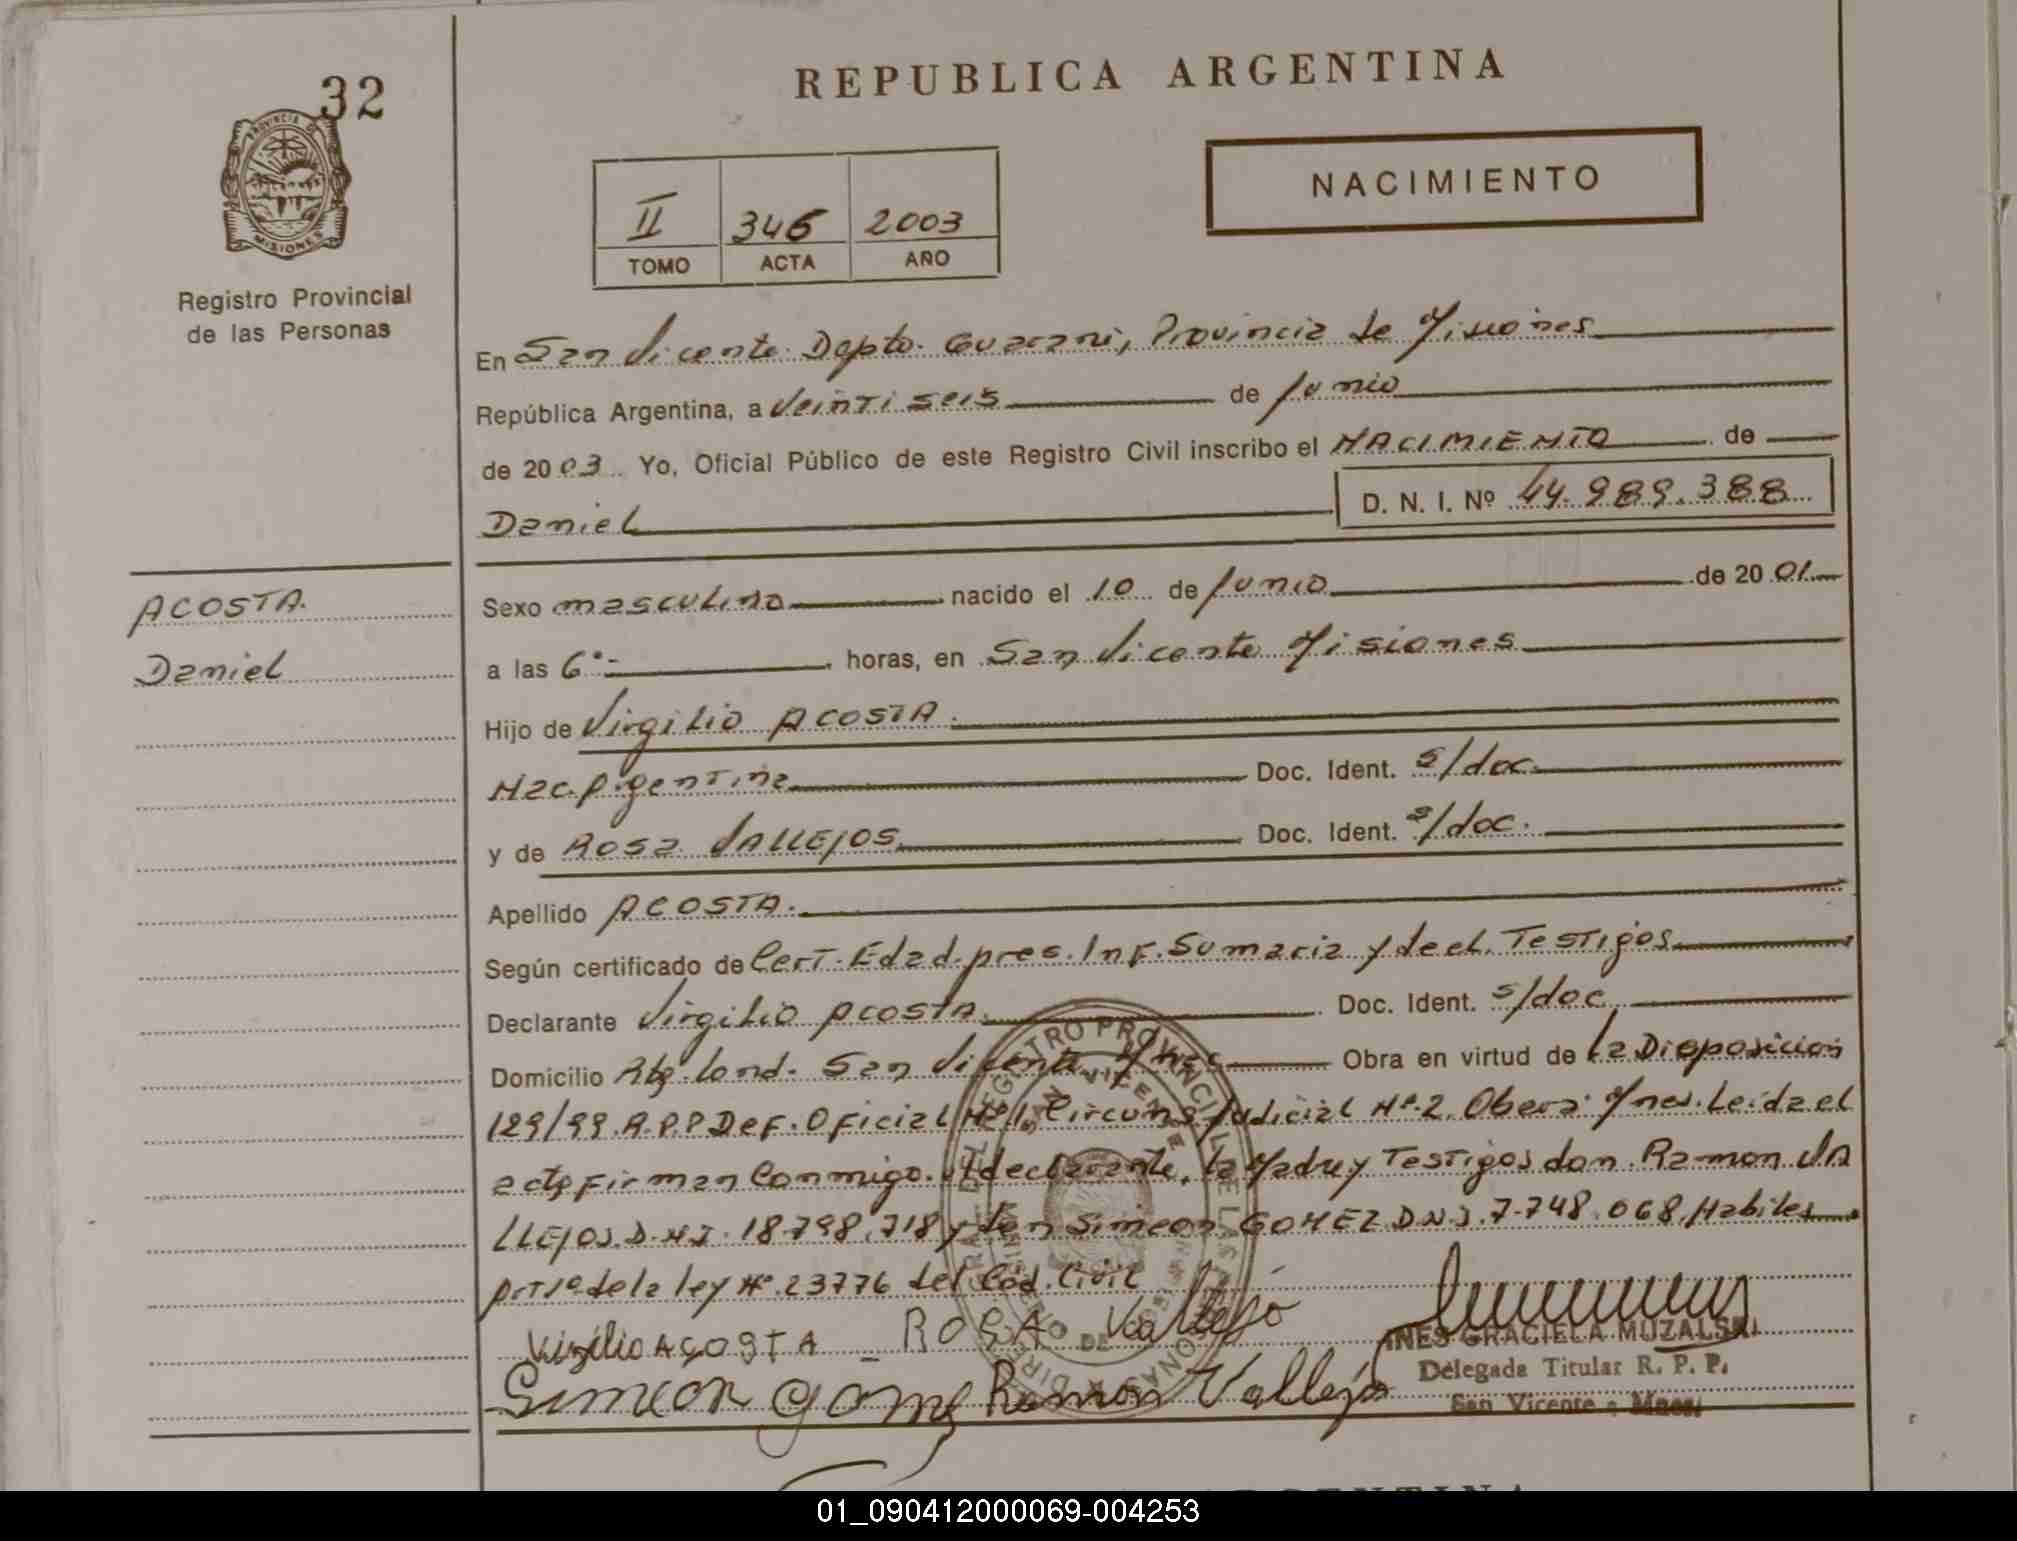 32
PROVINCIA DE
MISIONES
Registro Provincial
de las Personas
REPUBLICA ARGENTINA
NACIMIENTO
II 346 2003
TOMO ACTA AÑO
En San Vicente Depto. Guarani, Provincia de Misiones
República Argentina, a Veintiseis de Junio
de 2003 Yo, Oficial Público de este Registro Civil inscribo el NACIMIENTO de
Daniel D. N. I. Nº 44.989.388
ACOSTA.
Daniel
Sexo masculino nacido el 10 de Junio de 2001
a las 6°- horas, en San Vicente Misiones
Hijo de Virgilio ACOSTA.
Nac. Argentina Doc. Ident. s/doc.
y de ROSA VALLEJOS Doc. Ident. s/doc.
Apellido ACOSTA.
Según certificado de Cert. Edad. pres. Inf. Sumaria y decl. Testigos
Declarante Virgilio ACOSTA. Doc. Ident. s/doc
Domicilio San Vicente Mnes Obra en virtud de la Disposicion
129/99. R.P.P Def. Oficial Nº 1 Circuns Judicial Nº. 2 Obera Mnes. Leida el
acta firman Conmigo el declarante, la Madre y Testigos don Ramon VA
LLEJOS. D.N.I. 18.798.718 y don Simeon GOMEZ D.N.I. 7.748.068 Habiles
de la ley Nº. 23776 del Cód. Civil
Virgilio ACOSTA - ROSA Vallejo
Simeon gomez Ramon Vallejo
INES GRACIELA MUZALSKI
Delegada Titular R. P. P.
San Vicente - Mnes.
01_090412000069-004253